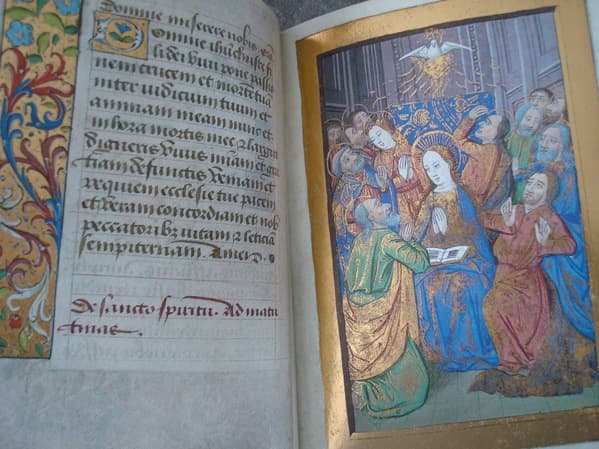 Domine miserere nobis. Da
Domine ihu christe fi
li dei vivi pone passio
nem crucem et mortem tua
inter iudicium tuum et
animam meam nunc et
in hora mortis mee et largiri
digneris vivis miam et gra
tiam defunctis veniam et
requiem ecclesie tue pacem
et veram concordiam et nob
peccatoribz vitam et leticia
sempiternam. Amen
De sancto spiritu. Ad matu
tinas.